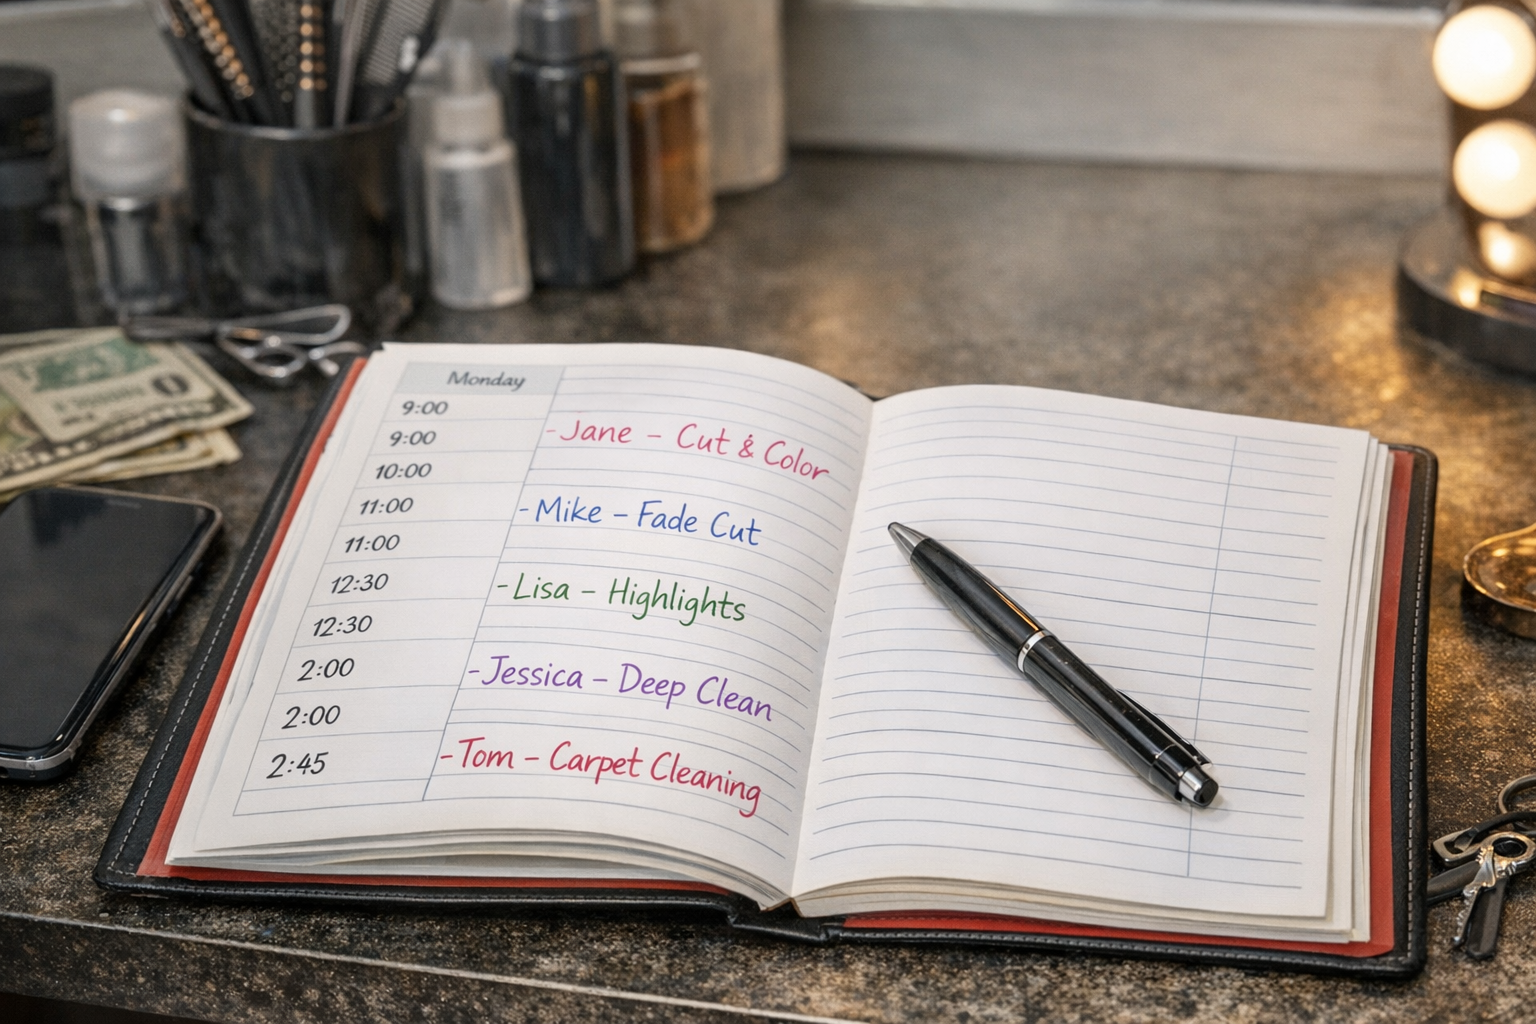 Monday
9:00
9:00 -Jane – Cut & Color
10:00
11:00 -Mike – Fade Cut
11:00
12:30 -Lisa – Highlights
12:30
2:00 -Jessica – Deep Clean
2:00
2:45 -Tom – Carpet Cleaning
0